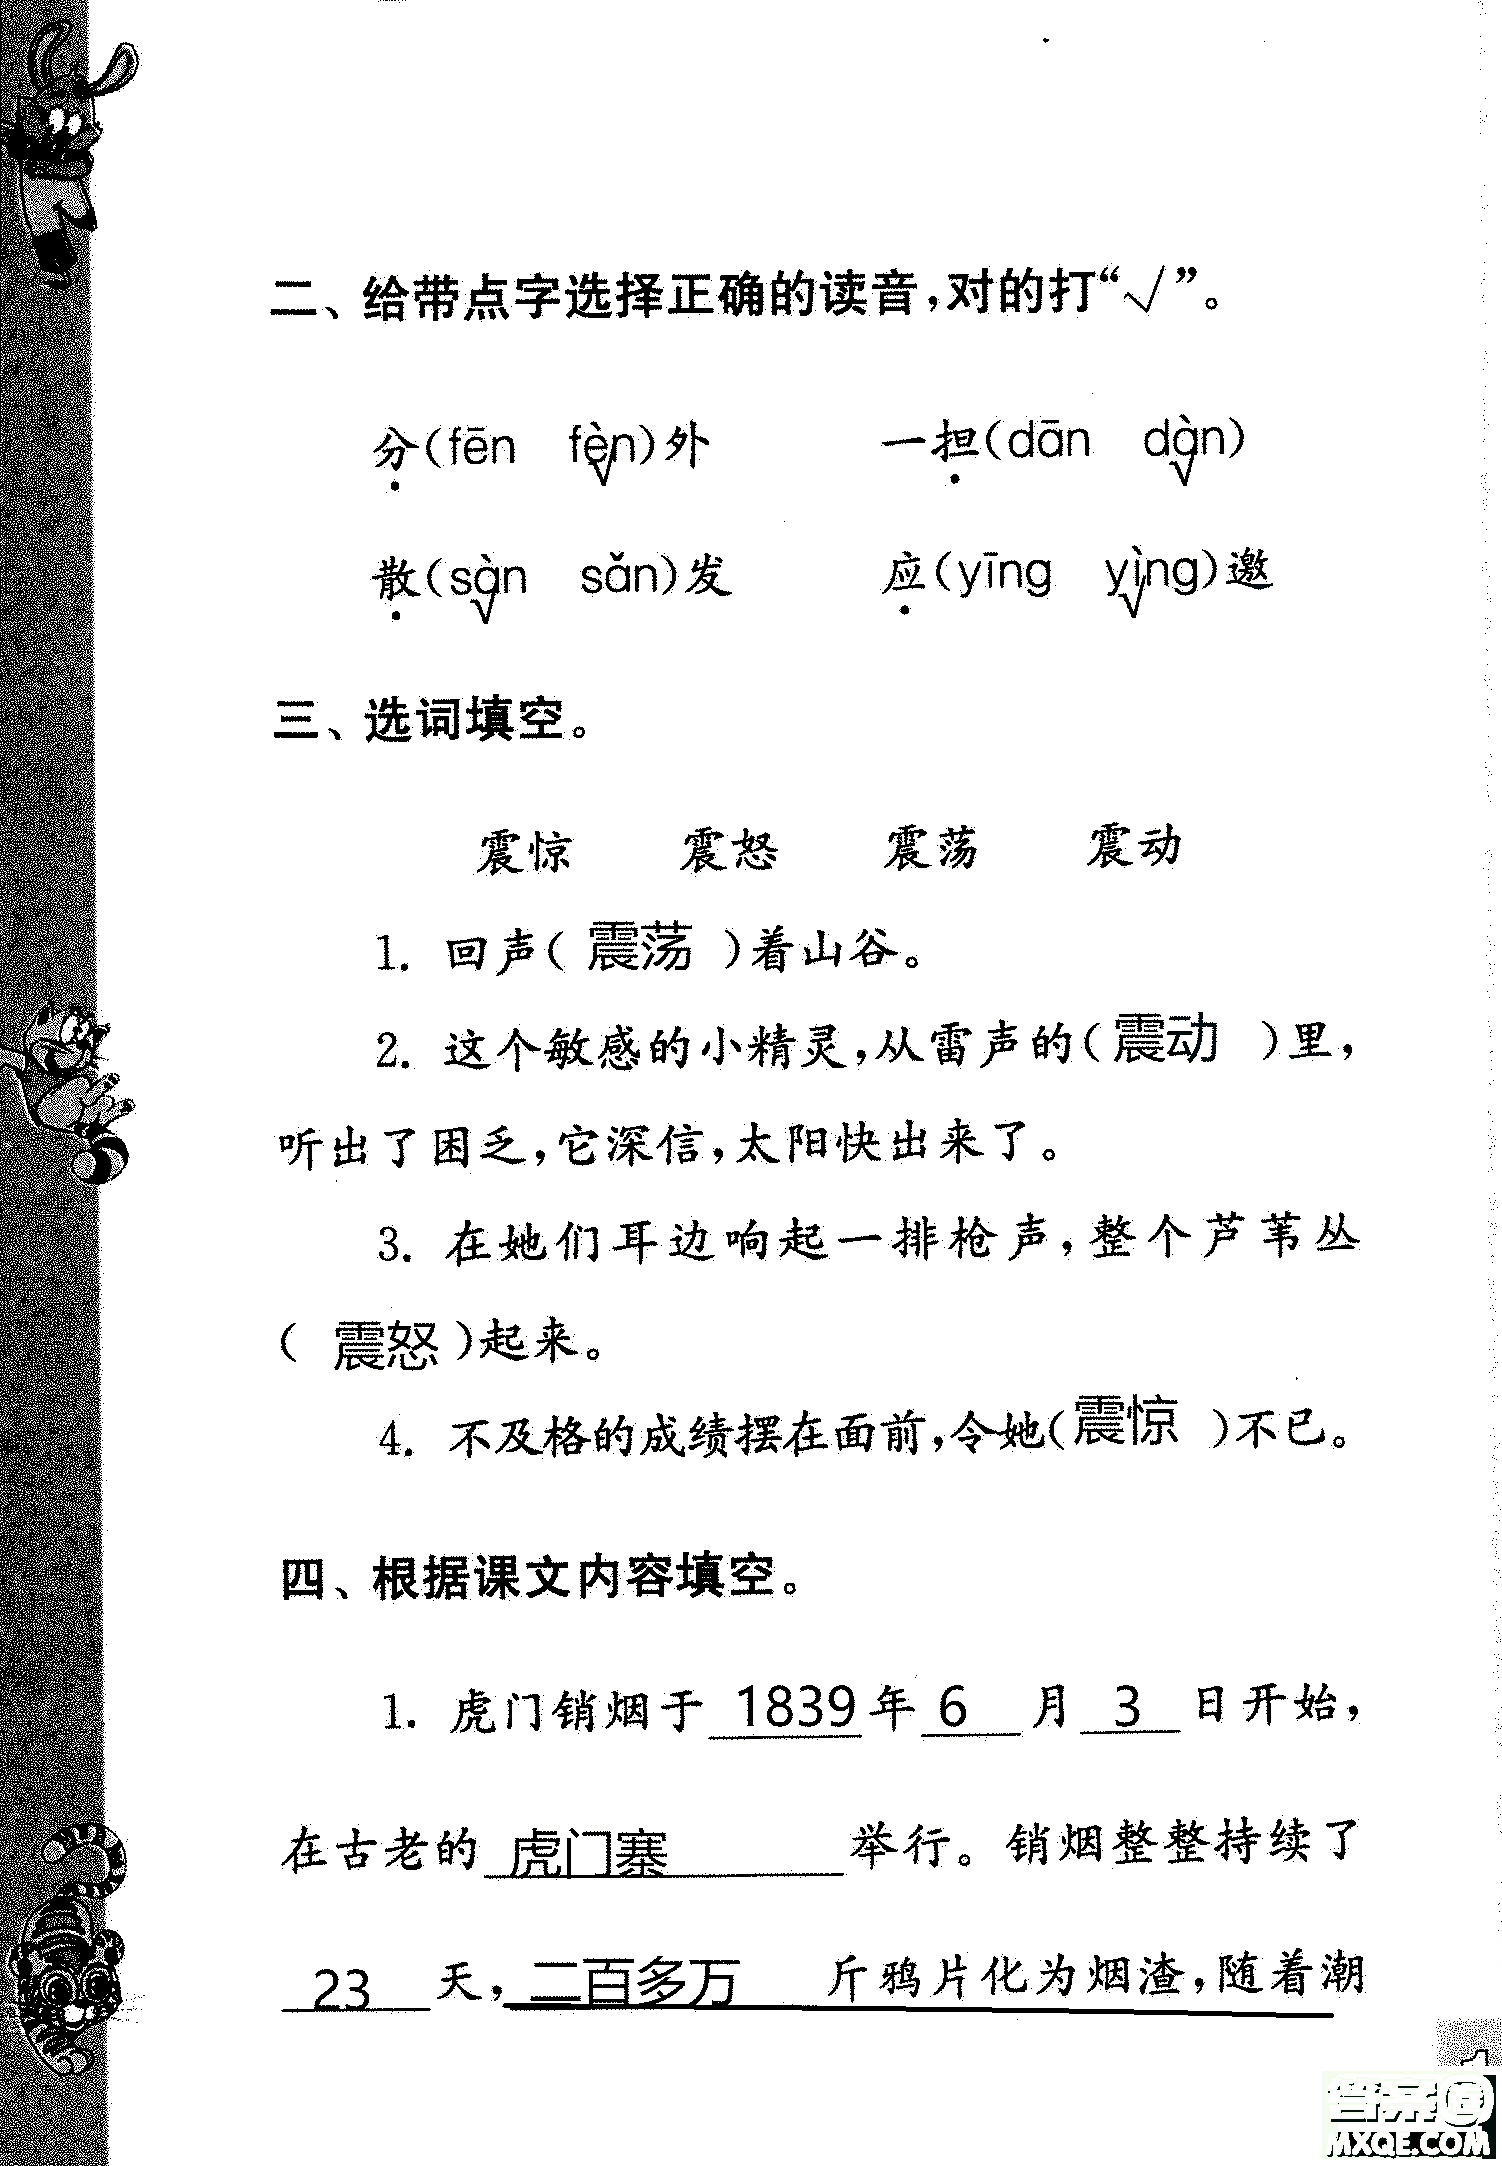 二、给带点字选择正确的读音，对的打“√”。
分(fēn fèn√)外 一担(dān dàn√)
散(sàn√ sǎn)发 应(yīng yìng√)邀
三、选词填空。
震惊 震怒 震荡 震动
1. 回声( 震荡 )着山谷。
2. 这个敏感的小精灵，从雷声的( 震动 )里，
听出了困乏，它深信，太阳快出来了。
3. 在她们耳边响起一排枪声，整个芦苇丛
( 震怒 )起来。
4. 不及格的成绩摆在面前，令她( 震惊 )不已。
四、根据课文内容填空。
1. 虎门销烟于 1839 年 6 月 3 日开始，
在古老的 虎门寨 举行。销烟整整持续了
23 天， 二百多万 斤鸦片化为烟渣，随着潮
1
答案@
MXQE.COM